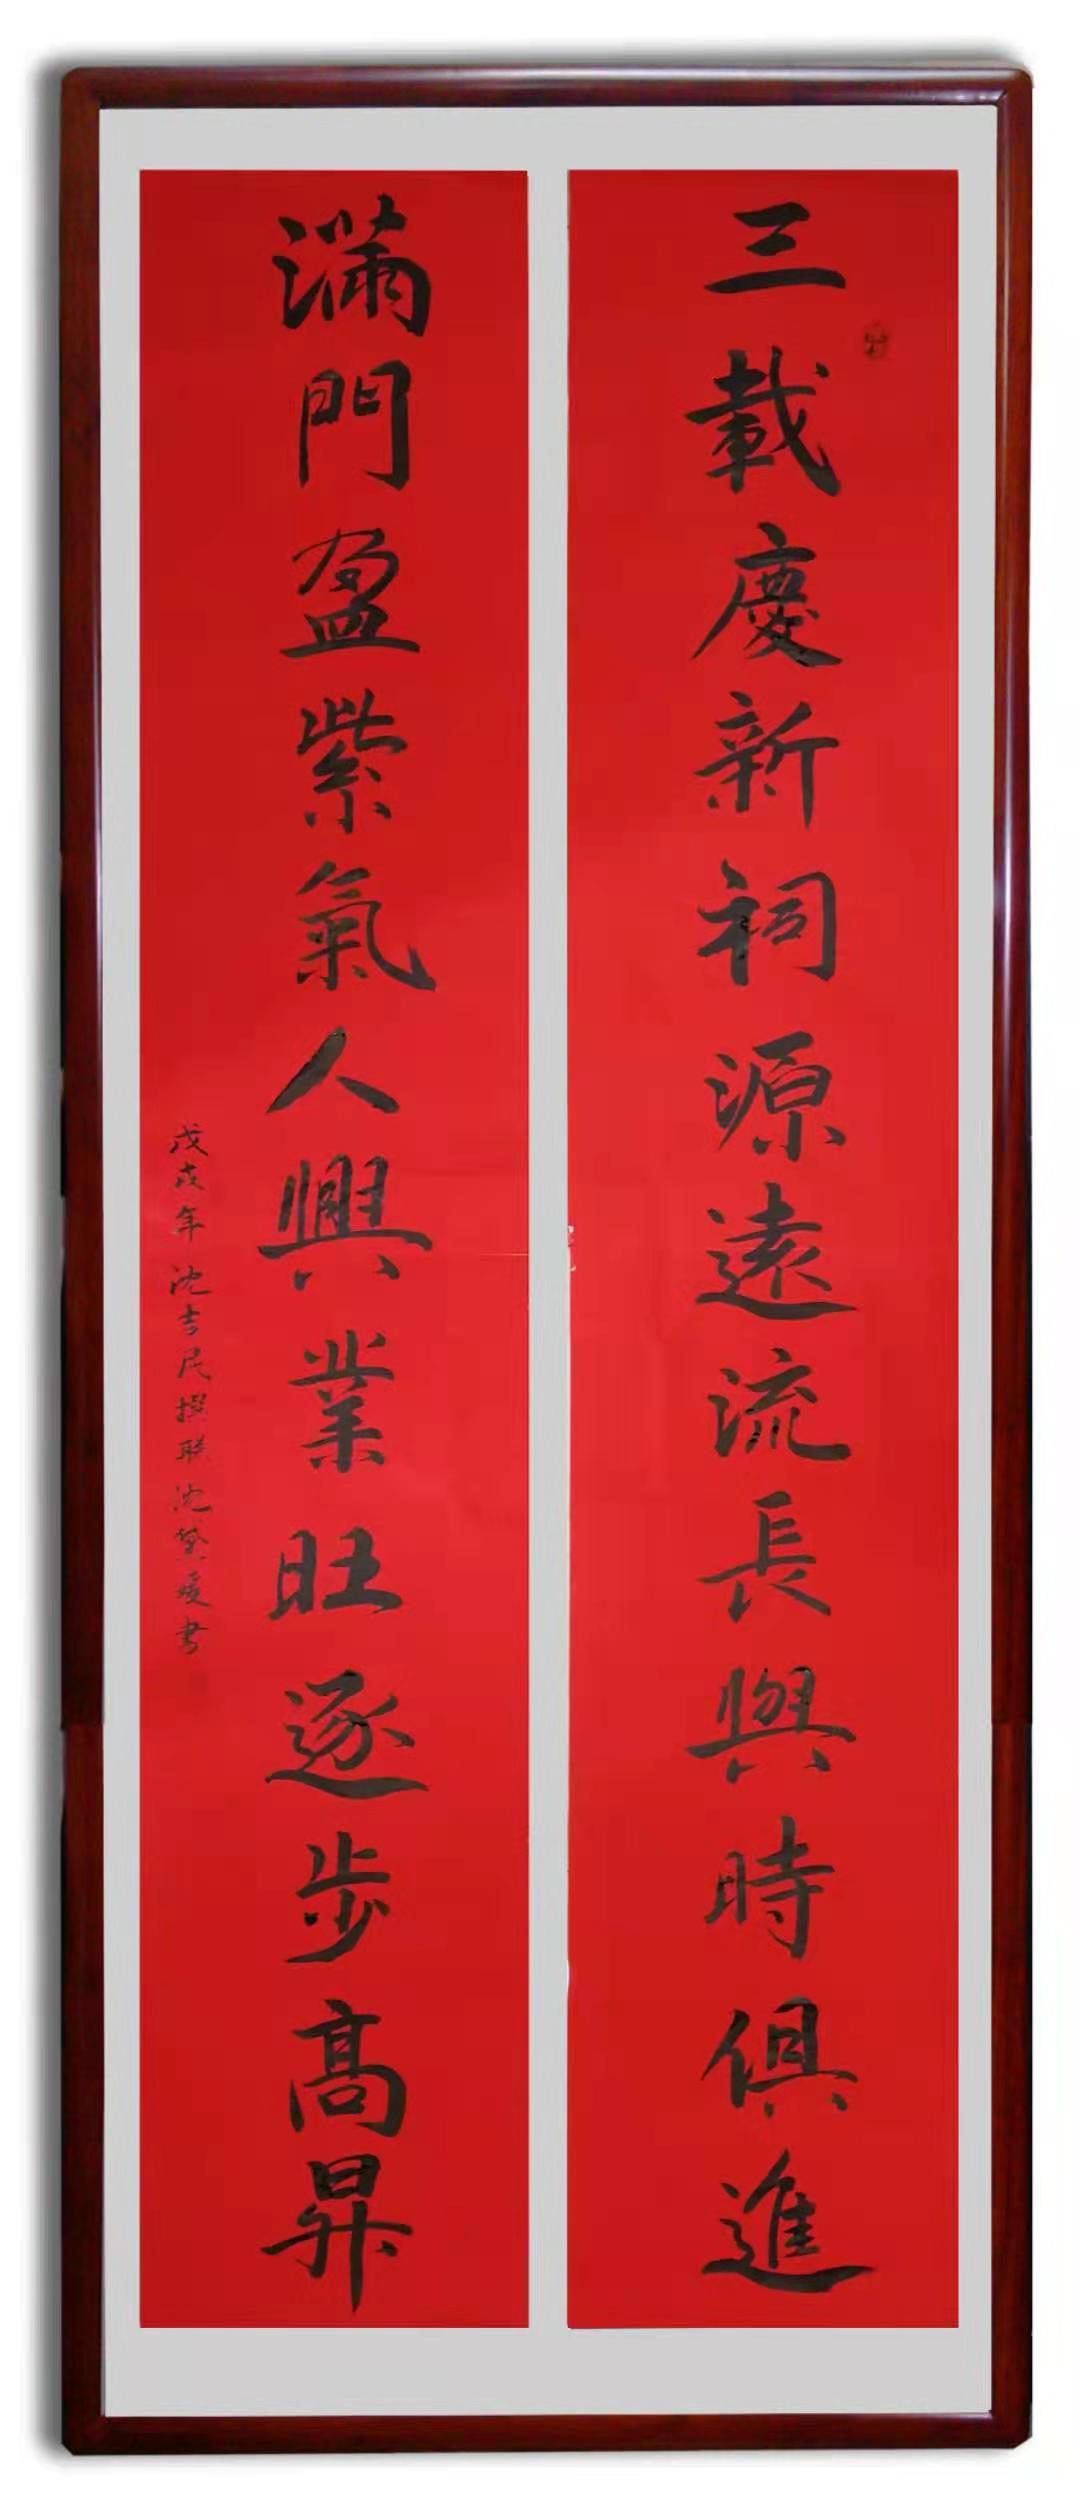 三載慶新祠源遠流長與時俱進
滿門盈紫氣人興業旺逐步高昇
戊戌年沈吉民撰联沈 媛书